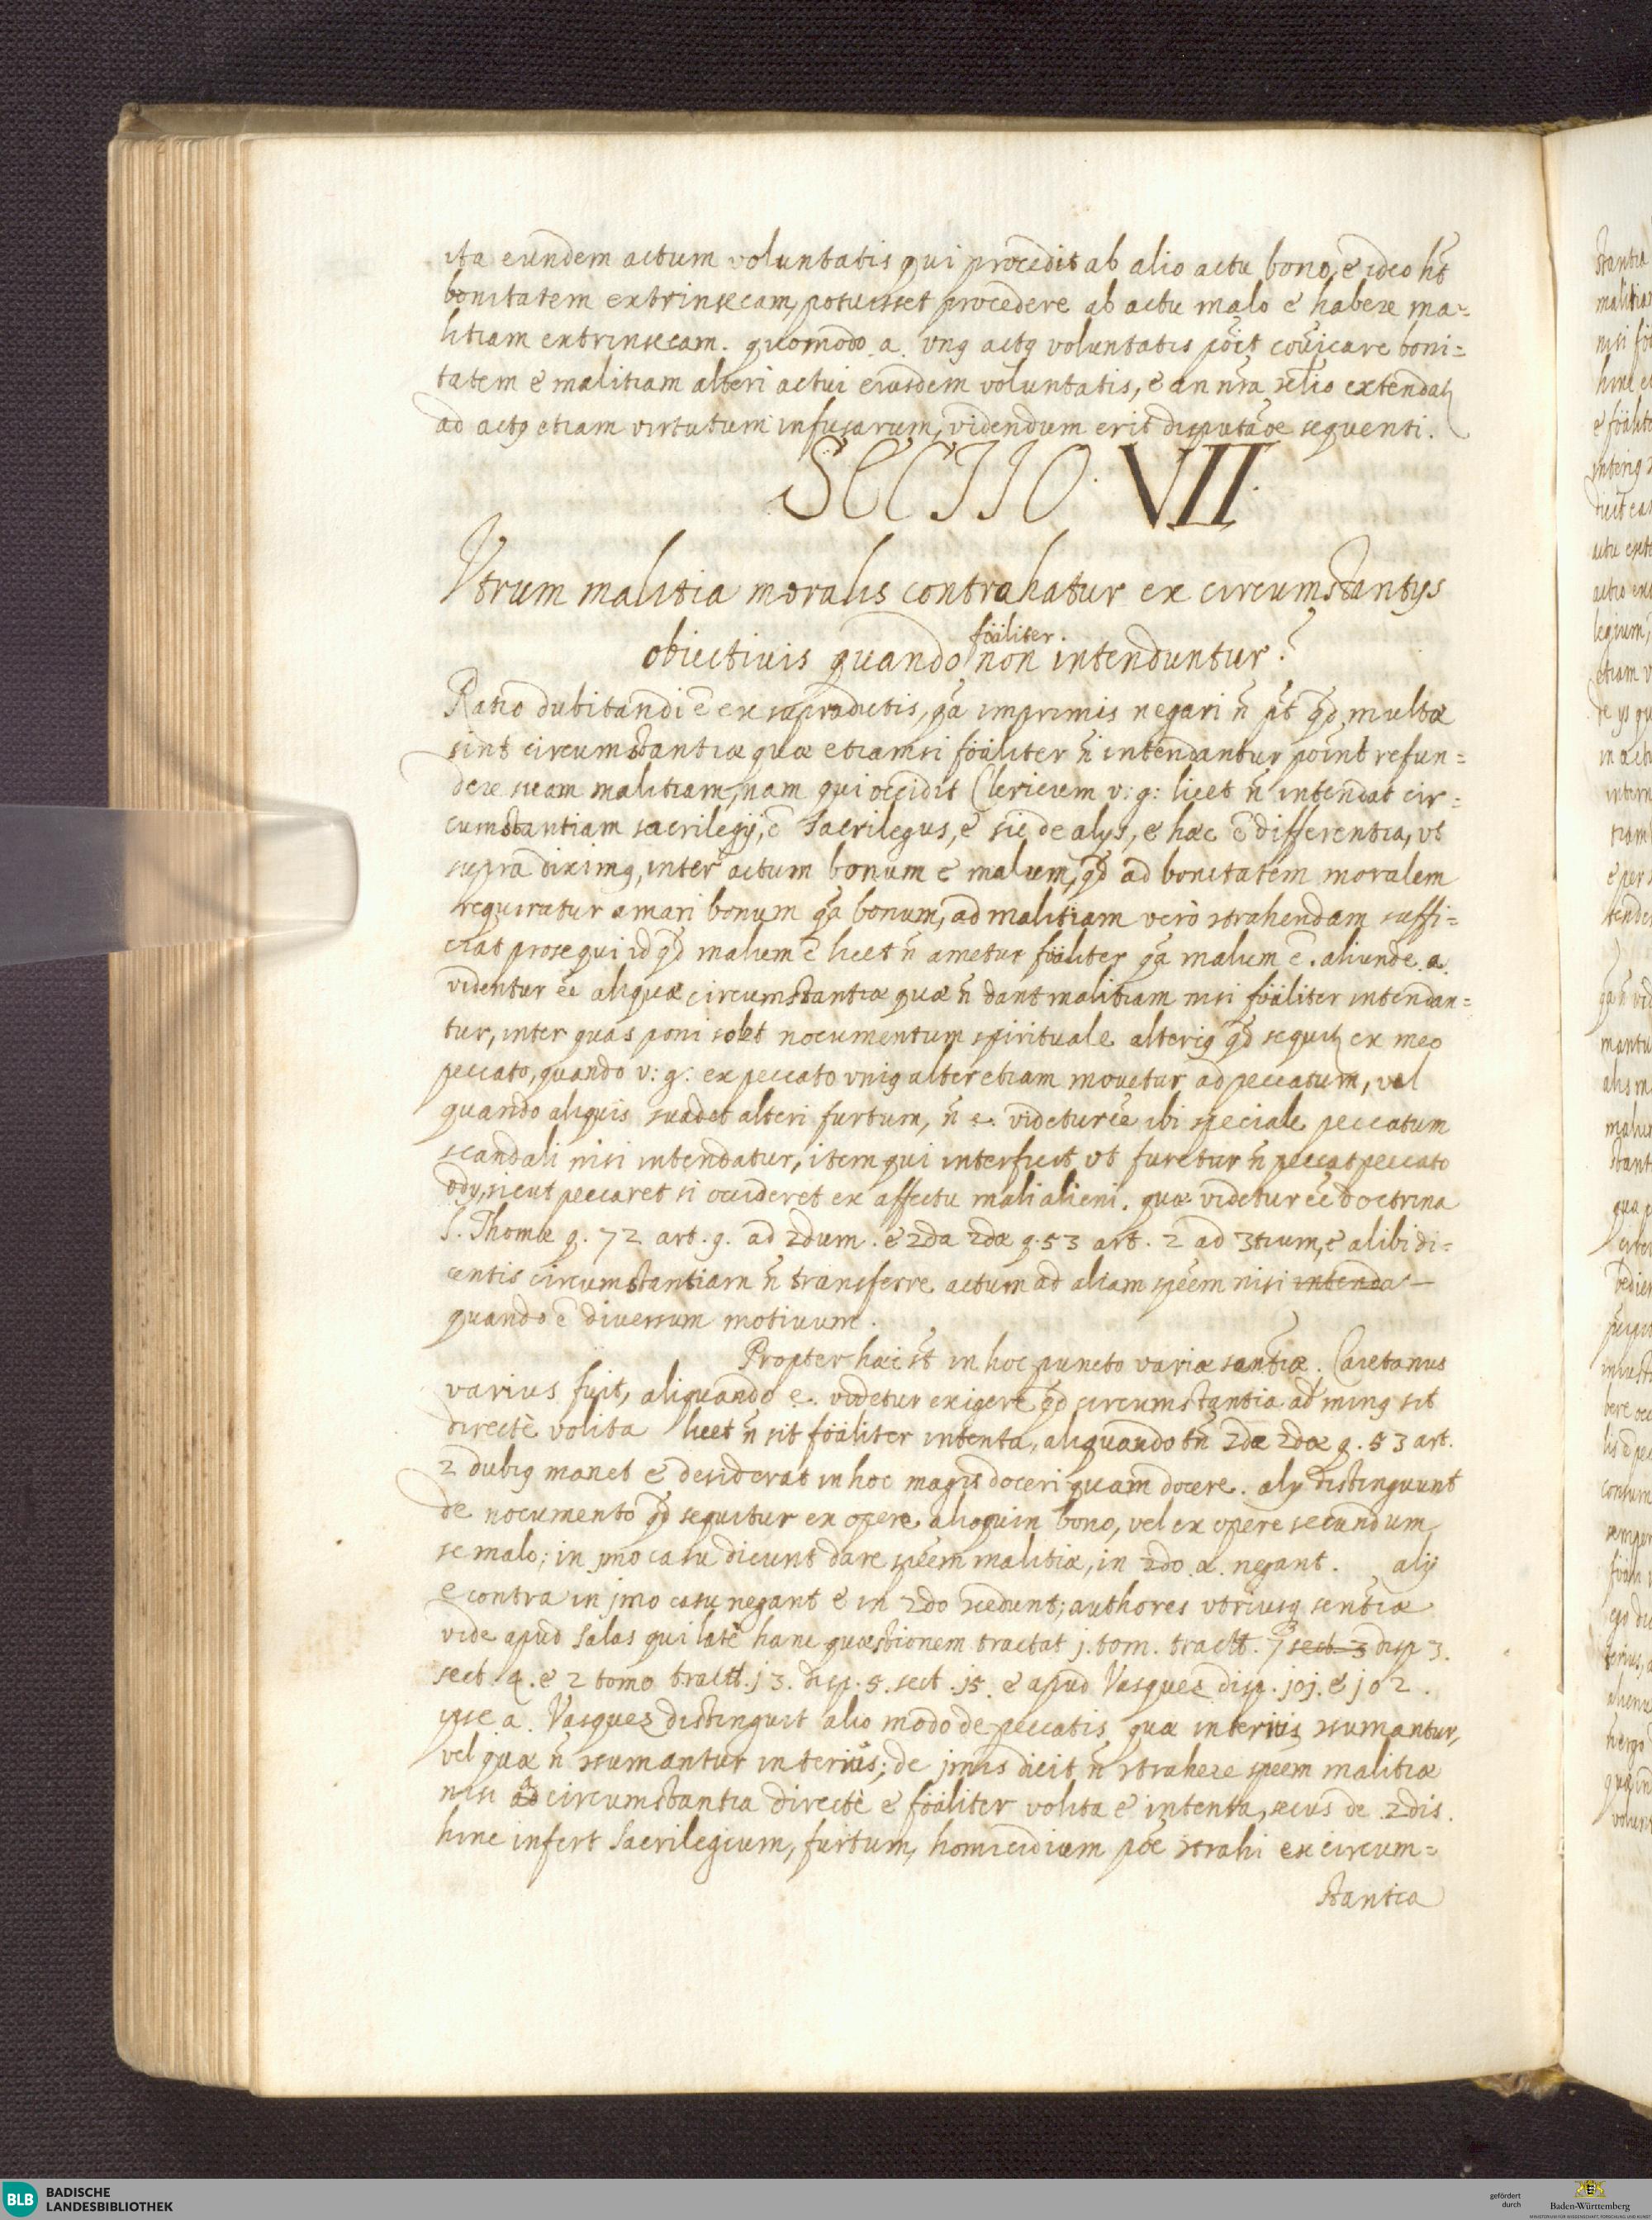 ita eundem actum voluntatis qui procedit ab alio actu bono, e ideo ht̃
bonitatem extrinsecam, potuisset procedere ab actu malo e habere ma=
litiam extrinsecam. quomodo .a. vnq actq voluntatis põit cõuicare boni=
tatem e malitiam alteri actui eiusdem voluntatis, e an nr̃a
ad actq etiam virtutum infusarum, videndum erit disputãoe sequenti.
SECTIO. VII.
Vtrum malitia moralis contrahatur ex circumstantijs
föäliter.
obiectiuis quando non intenduntur?
Ratio dubitandi ẽ ex supradictis, qã imprimis negari ñ pt̃ qd̃ multæ
sint circumstantiæ quæ etiamsi föäliter ñ intendantur point refun=
dere suam malitiam, nam qui occidit Clericum v: g: licet ñ intendat cir=
cumstantiam sacrilegij, ẽ sacrilegus, e sic de alijs, e hæc ẽ differentia, vt
supra diximq, inter actum bonum e malum, qd̃ ad bonitatem moralem
requiratur amari bonum qã bonum, ad malitiam verò strahendam suffi=
ciat prosequi id qd̃ malum ẽ licet ñ ametur föäliter qã malum ẽ. aliunde .a.
videntur ẽe aliquæ circumstantiæ quæ ñ dant malitiam nisi föäliter intendan=
tur, inter quas poni solet nocumentum spirituale alteriq qd̃ sequit ex meo
peccato, quando v: g: ex peccato vniq alter etiam mouetur ad peccatum, vel
quando aliquis suadet alteri furtum, ñ e. videtur ẽe ibi speciale peccatum
scandali nisi intendatur, item qui interficit vt furetur ñ peccat peccato
odij, sicut peccaret si occideret ex affectu mali alieni. quæ videtur ẽe doctrina
S. Thomæ q. 72 art. 9. ad 2dum. e 2da 2dæ q. 53 art. 2 ad 3tium, e alibi di=
centis circumstantiam ñ transferre actum ad aliam spẽem nisi intenda
quando ẽ diuersum motiuum.
Propter hæc st̃ in hoc puncto variæ santĩæ. Caietanus
varius fuit, aliquando e. videtur exigere qd̃ circumstantia ad minq sit
directè volita licet ñ sit föäliter intenta, aliquando tñ 2dæ 2dæ q. 53 art.
2 dubiq manet e desiderat in hoc magis doceri quam docere. alij distinguunt
de nocumento qd̃ sequitur ex opere alioquin bono, vel ex opere secundum
se malo; in jmo casu dicunt dare spẽem malitiæ, in 2do .a. negant. alij
e contra in jmo casu negant e in 2do scedunt; authores vtriusq sentĩæ
vide apud Salas qui latè hanc quæstionem tractat j. tom. tractt. 7 sect. 3 disp 3.
sect. 4. e 2 tomo tractt. j3. disp. 5. sect. j5. e apud Vasquez disp. joj. e jo2.
ipse .a. Vasquez distinguit alio modo de peccatis quæ interiis sumantur,
vel quæ ñ sumantur interiùs; de jmis dicit ñ strahere spẽem malitiæ
nisi circumstantia directè e föäliter volita e intenta, secus de 2dis.
hinc infert Sacrilegium, furtum, homicidium põe strahi ex circum=
stantia
BLB BADISCHE
LANDESBIBLIOTHEK
gefördert
durch
Baden-Württemberg